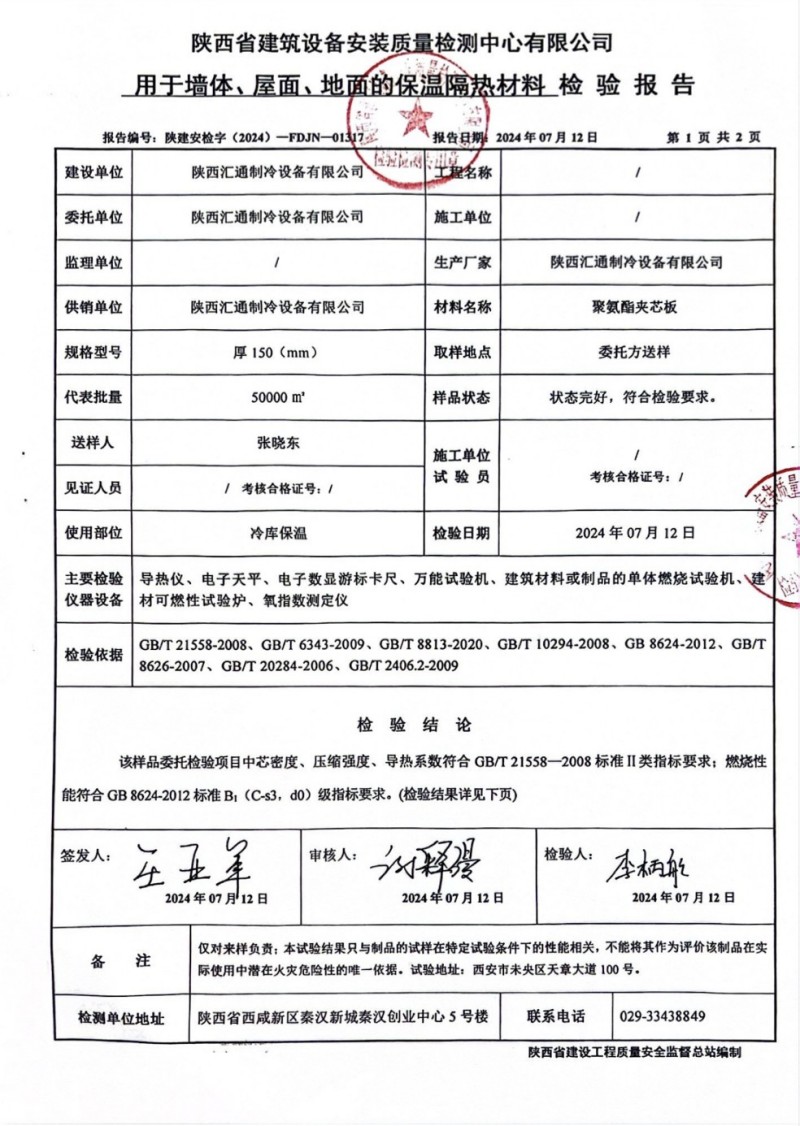 陕西省建筑设备安装质量检测中心有限公司
用于墙体、屋面、地面的保温隔热材料 检 验 报 告
报告编号：陕建安检字（2024）—FDJN—01317 报告日期：2024年07月12日 第 1 页 共 2 页
建设单位 陕西汇通制冷设备有限公司 工程名称 /
委托单位 陕西汇通制冷设备有限公司 施工单位 /
监理单位 / 生产厂家 陕西汇通制冷设备有限公司
供销单位 陕西汇通制冷设备有限公司 材料名称 聚氨酯夹芯板
规格型号 厚 150（mm） 取样地点 委托方送样
代表批量 50000 ㎡ 样品状态 状态完好，符合检验要求。
送样人 张晓东
施工单位 /
试 验 员 考核合格证号：/
见证人员 / 考核合格证号：/
使用部位 冷库保温 检验日期 2024 年 07 月 12 日
主要检验 导热仪、电子天平、电子数显游标卡尺、万能试验机、建筑材料或制品的单体燃烧试验机、建
仪器设备 材可燃性试验炉、氧指数测定仪
检验依据 GB/T 21558-2008、GB/T 6343-2009、GB/T 8813-2020、GB/T 10294-2008、GB 8624-2012、GB/T
8626-2007、GB/T 20284-2006、GB/T 2406.2-2009
检 验 结 论
该样品委托检验项目中芯密度、压缩强度、导热系数符合 GB/T 21558—2008 标准Ⅱ类指标要求；燃烧性
能符合 GB 8624-2012 标准 B₁（C-s3，d0）级指标要求。(检验结果详见下页)
签发人： 审核人： 检验人：
2024 年 07 月 12 日 2024 年 07 月 12 日 2024 年 07 月 12 日
备 注 仅对来样负责；本试验结果只与制品的试样在特定试验条件下的性能相关，不能将其作为评价该制品在实
际使用中潜在火灾危险性的唯一依据。试验地址：西安市未央区天章大道 100 号。
检测单位地址 陕西省西咸新区秦汉新城秦汉创业中心 5 号楼 联系电话 029-33438849
陕西省建设工程质量安全监督总站编制